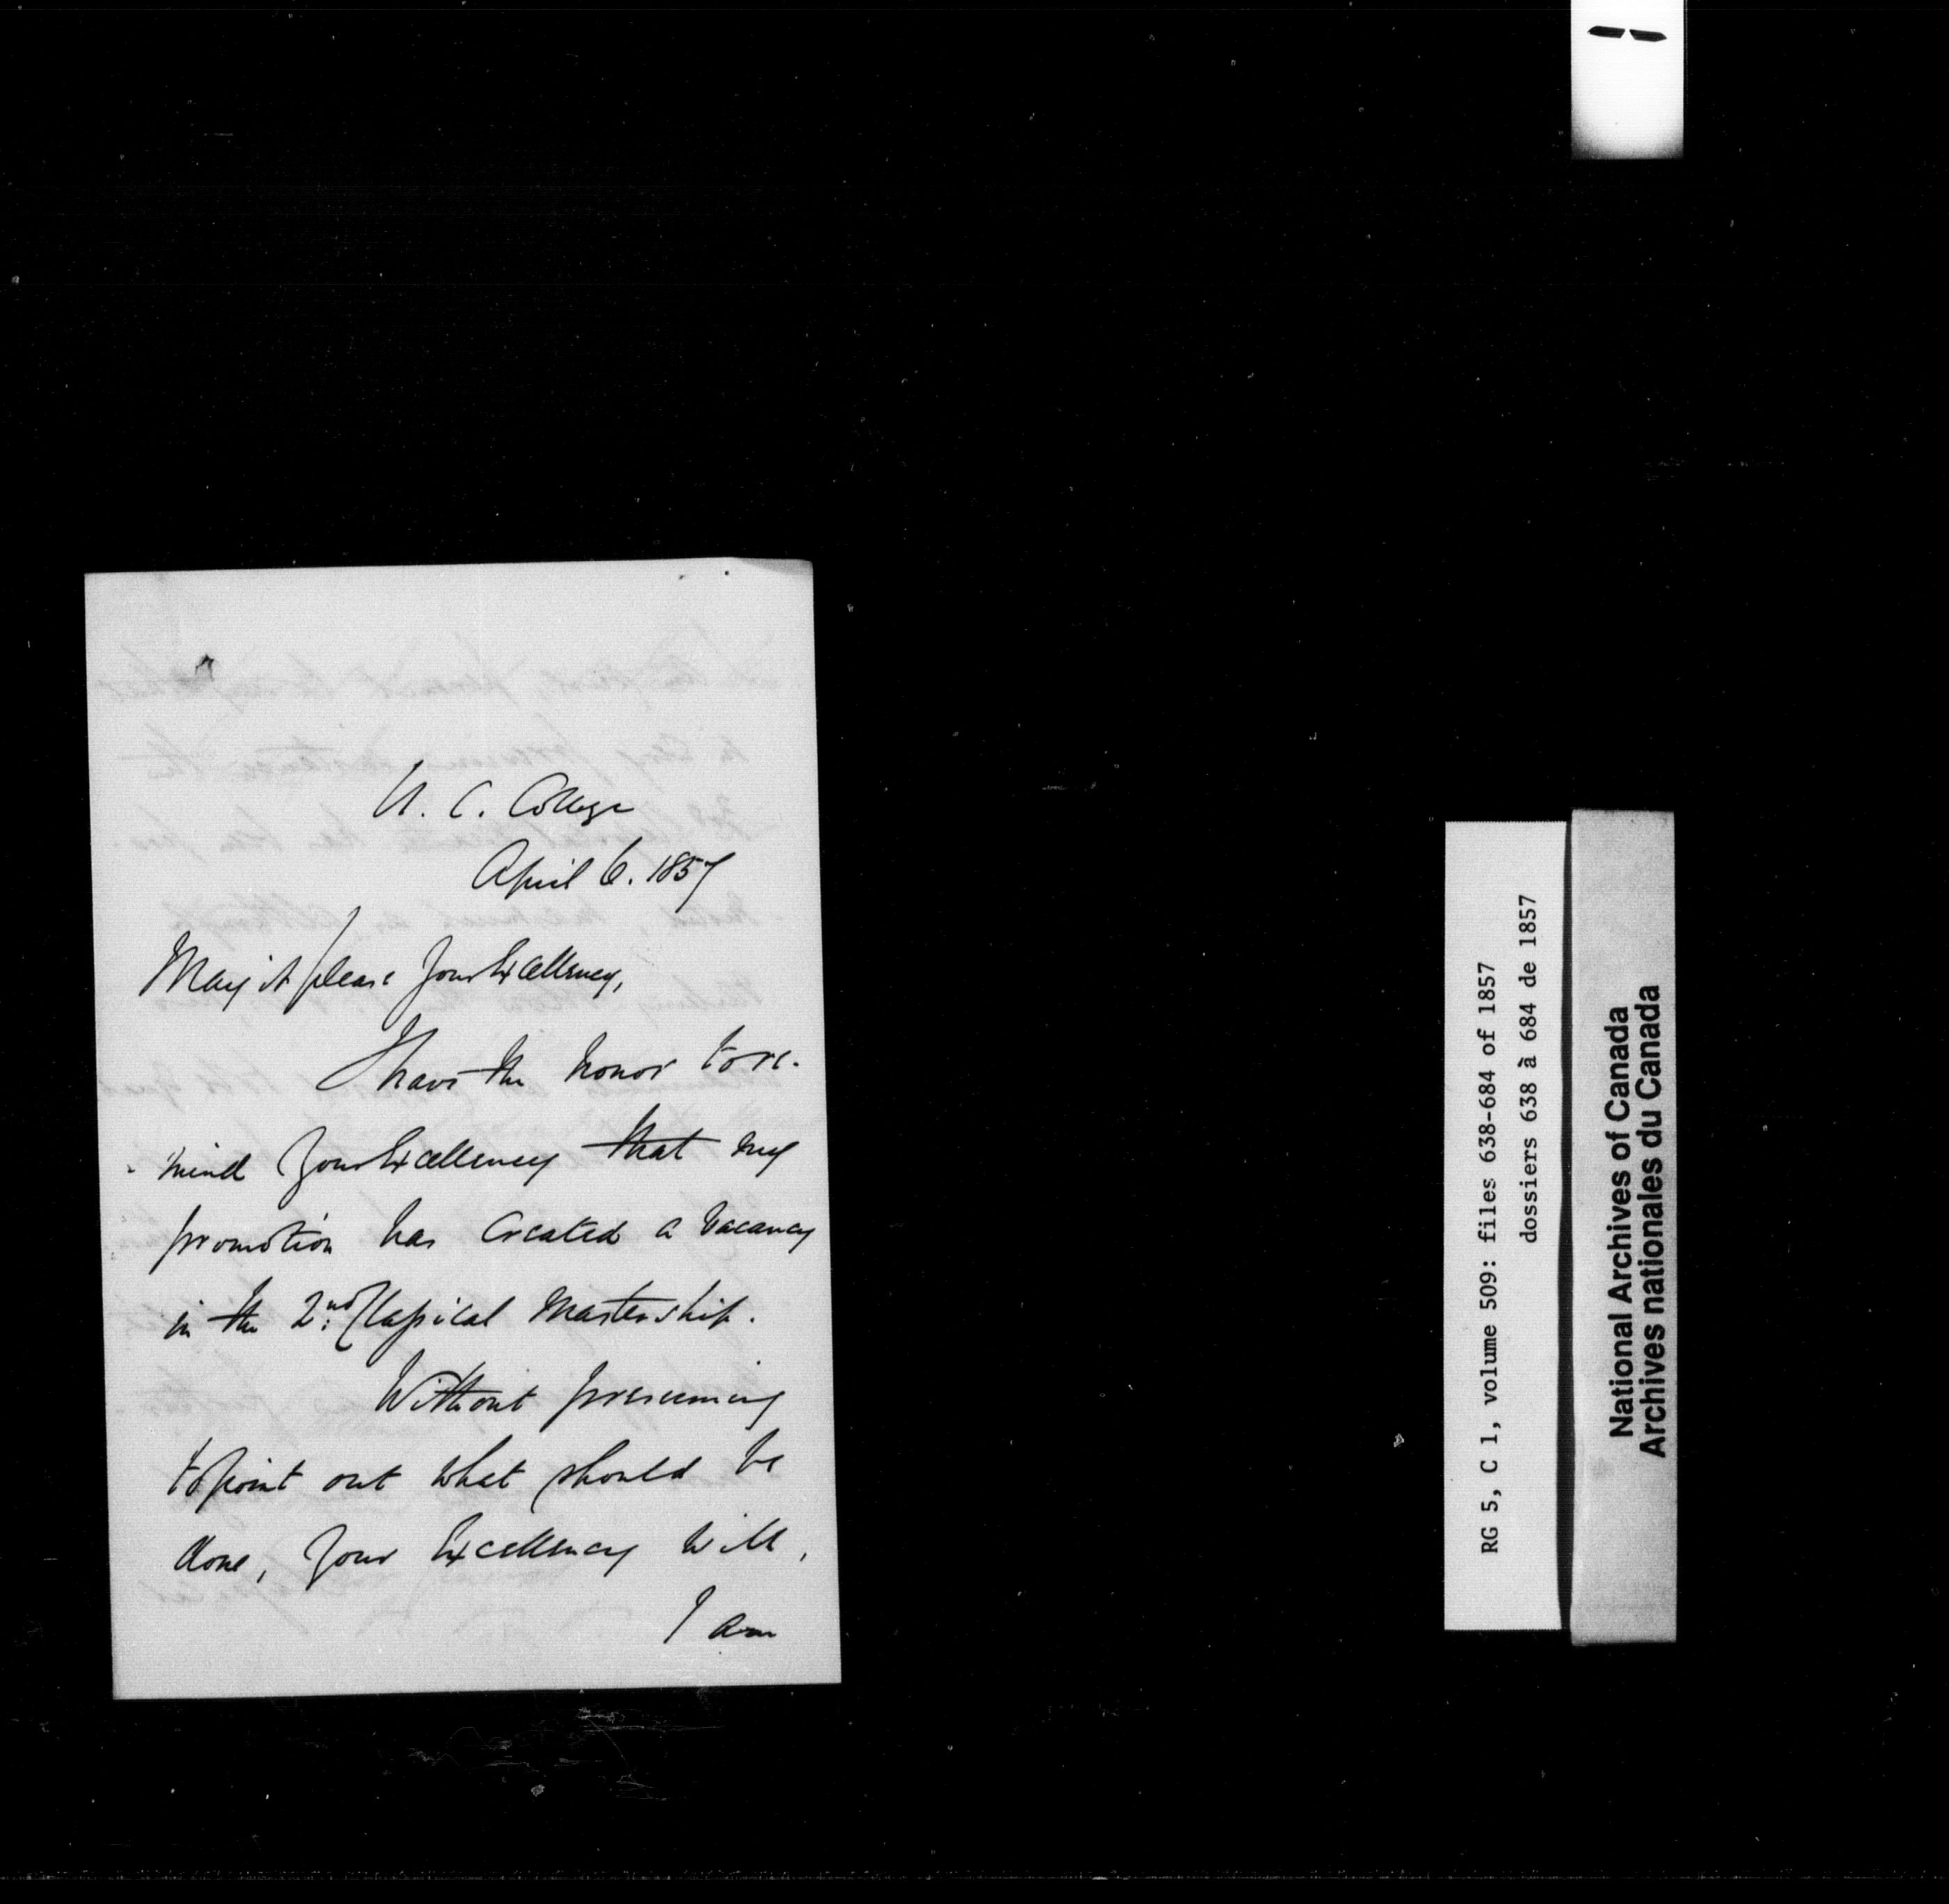 U. C. College
April 6. 1857
May it please Your Excellency,
I have the honor to re-
-mind Your Excellency that my
promotion has created a vacancy
in the 2nd. Classical Mastership.
Without presuming
to point out what should be
done, Your Excellency will,
I am
RG 5, C 1, volume 509: files 638-684 of 1857
dossiers 638 à 684 de 1857
National Archives of Canada
Archives nationales du Canada